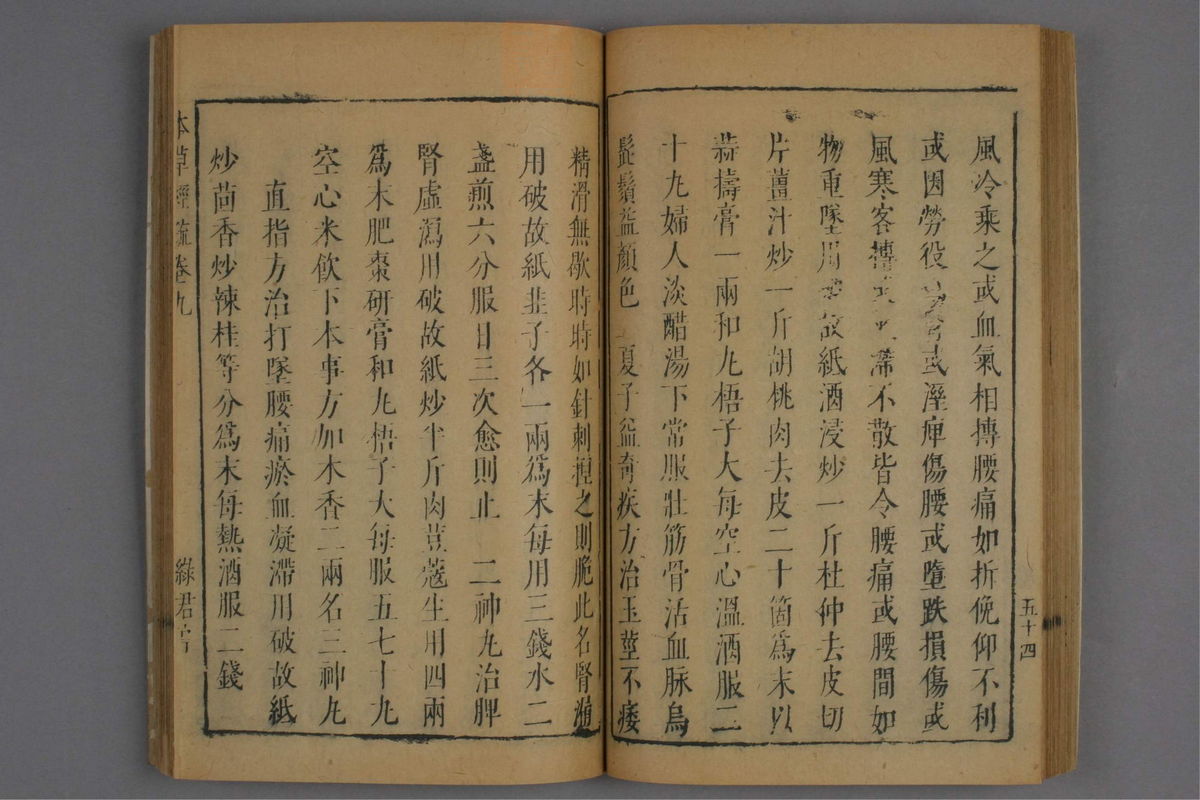 五十四
風冷乘之或血氣相搏腰痛如折俛仰不利
或因勞役傷腎或溼痺傷腰或墮跌損傷或
風寒客摶或滯不散皆令腰痛或腰間如
物重墜用故紙酒浸炒一斤杜仲去皮切
片薑汁炒一斤胡桃肉去皮二十箇爲末以
蒜擣膏一兩和丸梧子大每空心溫酒服二
十丸婦人淡醋湯下常服壯筋骨活血脉烏
髭鬚益顏色 夏子益奇疾方治玉莖不痿
精滑無歇時時如針刺揑之則脆此名腎漏
用破故紙韭子各一兩爲末每用三錢水二
盞煎六分服日三次愈則止 二神丸治脾
腎虛瀉用破故紙炒半斤肉荳蔻生用四兩
爲末肥棗研膏和丸梧子大每服五七十丸
空心米飲下本事方加木香二兩名三神丸
直指方治打墜腰痛瘀血凝滯用破故紙
炒茴香炒辣桂等分爲末每熱酒服二錢
本草經疏卷九
綠君亭